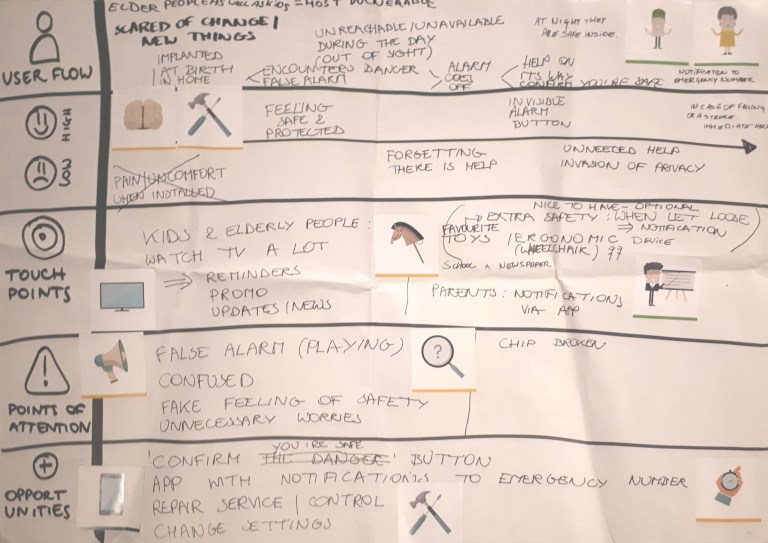 ELDER PEOPLE AS WELL AS KIDS = MOST VULNERABLE
SCARED OF CHANGE /
NEW THINGS
IMPLANTED
/ AT BIRTH
IN HOME
UNREACHABLE/UNAVAILABLE
DURING THE DAY
(OUT OF SIGHT)
ENCOUNTERS DANGER
FALSE ALARM
ALARM
GOES
OFF
AT NIGHT THEY
ARE SAFE INSIDE
HELP ON
ITS WAY
CONFIRM YOU'RE SAFE
NOTIFICATION TO
EMERGENCY NUMBER
USER FLOW
HIGH
FEELING
SAFE &
PROTECTED
INVISIBLE
ALARM
BUTTON
IN CASE OF FALLING
OR A STROKE
IMMEDIATE
LOW
PAIN/UNCOMFORT
WHEN INSTALLED
FORGETTING
THERE IS HELP
UNNEEDED HELP
INVASION OF PRIVACY
TOUCH
POINTS
KIDS & ELDERLY PEOPLE:
WATCH TV A LOT
⇒ REMINDERS
PROMO
UPDATES/NEWS
NICE TO HAVE - OPTIONAL
EXTRA SAFETY: WHEN LET LOOSE
⇒ NOTIFICATION
FAVOURITE
TOYS / ERGONOMIC DEVICE
(WHEELCHAIR) ??
SCHOOL NEWSPAPER
PARENTS: NOTIFICATIONS
VIA APP
POINTS OF
ATTENTION
FALSE ALARM (PLAYING)
CONFUSED
FAKE FEELING OF SAFETY
UNNECESSARY WORRIES
?
CHIP BROKEN
OPPORT
UNITIES
YOU'RE SAFE
'CONFIRM THE DANGER' BUTTON
APP WITH NOTIFICATIONS TO EMERGENCY NUMBER
REPAIR SERVICE / CONTROL
CHANGE SETTINGS